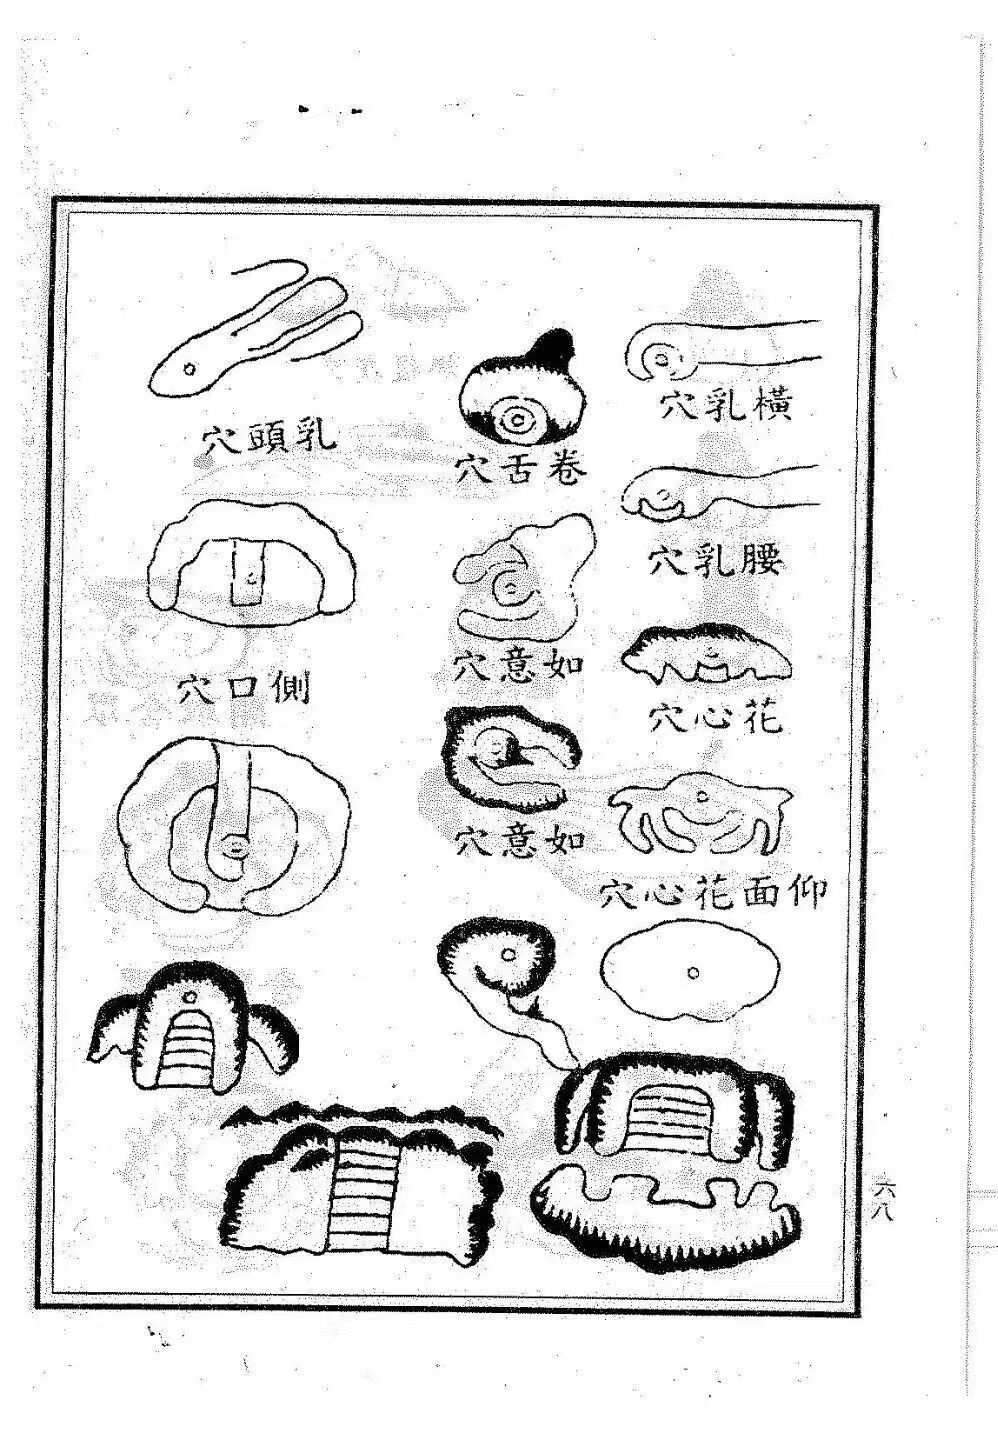 橫乳穴
腰乳穴
花心穴
仰面花心穴
卷舌穴
如意穴
如意穴
乳頭穴
側口穴
六八